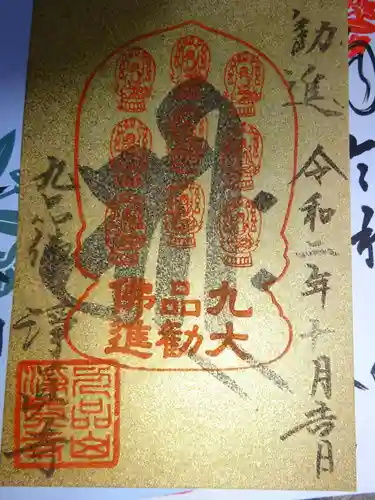 勧進
令和二年十月吉日
九品佛
大勧進
九品佛 浄真寺
九品山
浄真寺